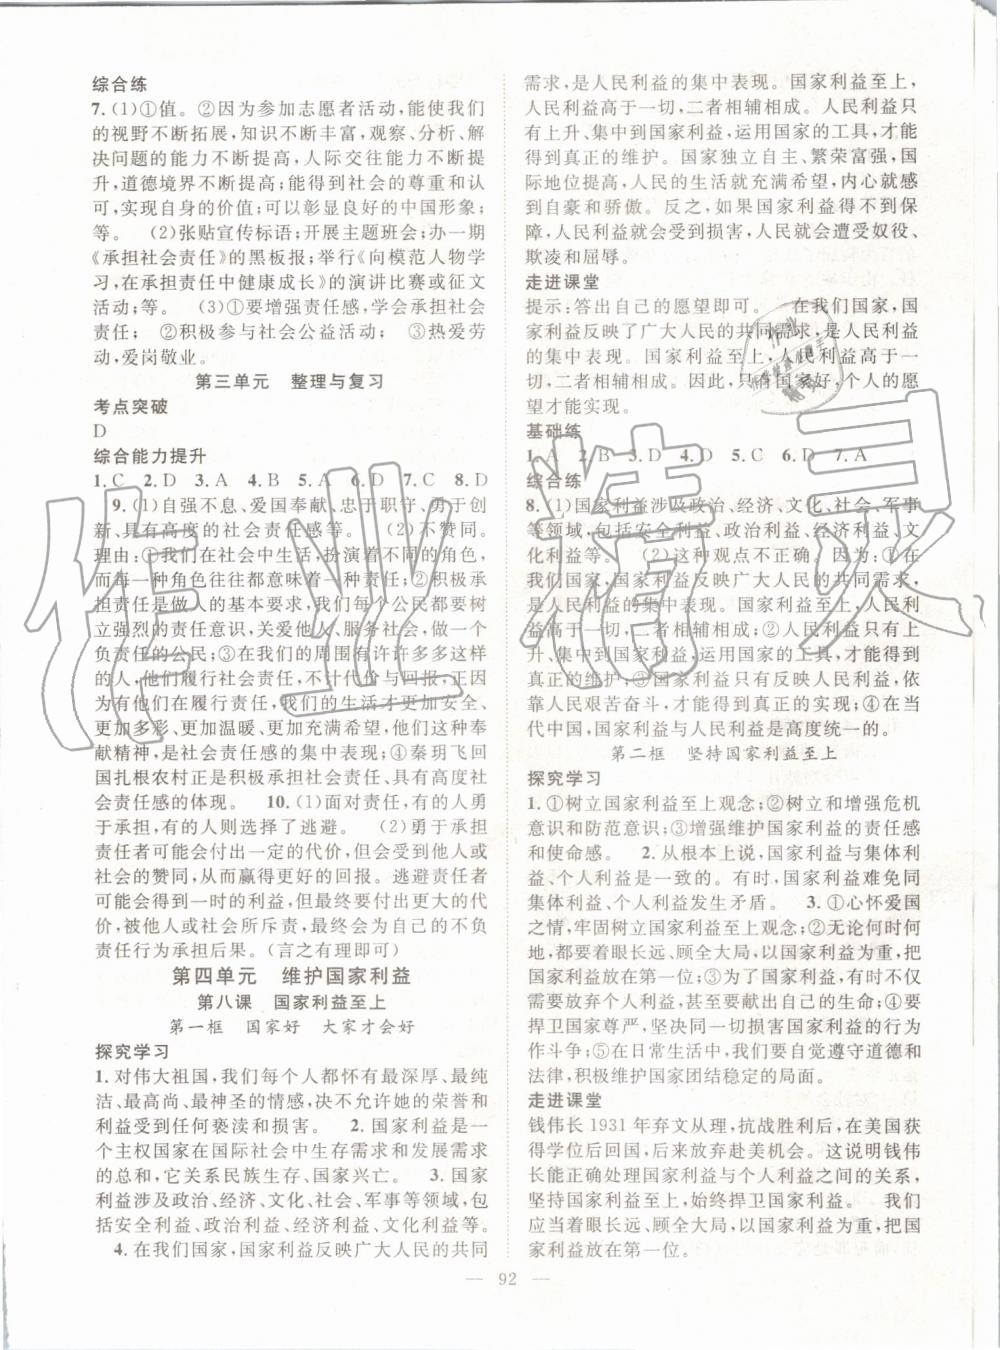 综合练
7.(1)①值。②因为参加志愿者活动,能使我们
的视野不断拓展,知识不断丰富,观察、分析、解
决问题的能力不断提高,人际交往能力不断提
升,道德境界不断提高;能得到社会的尊重和认
可,实现自身的价值;可以彰显良好的中国形象;
等。 (2)张贴宣传标语;开展主题班会;办一期
《承担社会责任》的黑板报;举行《向模范人物学
习,在承担责任中健康成长》的演讲比赛或征文
活动;等。 (3)①要增强责任感,学会承担社会
责任; ②积极参与社会公益活动; ③热爱劳
动,爱岗敬业。
第三单元 整理与复习
考点突破
D
综合能力提升
1.C 2.D 3.A 4.B 5.A 6.D 7.C 8.D
9.(1)自强不息、爱国奉献、忠于职守、勇于创
新、具有高度的社会责任感等。 (2)不赞同。
理由:①我们在社会中生活,扮演着不同的角色,
而每一种角色往往都意味着一种责任;②积极承
担责任是做人的基本要求,我们每个公民都要树
立强烈的责任意识,关爱他人,服务社会,做一个
负责任的公民;③在我们的周围有许许多多这样
的人,他们履行社会责任,不计代价与回报;正因
为有他们在履行责任,我们的生活才更加安全、
更加多彩、更加温暖、更加充满希望,他们这种奉
献精神,是社会责任感的集中表现;④秦玥飞回
国扎根农村正是积极承担社会责任、具有高度社
会责任感的体现。 10.(1)面对责任,有的人勇
于承担,有的人则选择了逃避。 (2)勇于承担
责任者可能会付出一定的代价,但会受到他人或
社会的赞同,从而赢得更好的回报。逃避责任者
可能会得到一时的利益,但最终要付出更大的代
价,被他人或社会所斥责,最终会为自己的不负
责任行为承担后果。(言之有理即可)
第四单元 维护国家利益
第八课 国家利益至上
第一框 国家好 大家才会好
探究学习
1.对伟大祖国,我们每个人都怀有最深厚、最纯
洁、最高尚、最神圣的情感,决不允许她的荣誉和
利益受到任何亵渎和损害。 2.国家利益是一
个主权国家在国际社会中生存需求和发展需求
的总和,它关系民族生存、国家兴亡。 3.国家
利益涉及政治、经济、文化、社会、军事等领域,包
括安全利益、政治利益、经济利益、文化利益等。
4.在我们国家,国家利益反映广大人民的共同
需求,是人民利益的集中表现。国家利益至上,
人民利益高于一切,二者相辅相成。人民利益只
有上升、集中到国家利益,运用国家的工具,才能
得到真正的维护。国家独立自主、繁荣富强,国
际地位提高,人民的生活就充满希望,人民就感
到自豪和骄傲。反之,如果国家利益得不到保
障,人民就会受到损害,人民就会遭受奴役、
欺凌和屈辱。
走进课堂
提示:答出自己的愿望即可。 在我们国家,国
家利益反映了广大人民的共同需求,是人民利益
的集中表现。国家利益至上,人民利益高于一
切,二者相辅相成。因此,只有国家好,个人的愿
望才能实现。
基础练
1.A 2.B 3.D 4.D 5.C 6.D 7.A
综合练
8.(1)国家利益涉及政治、经济、文化、社会、军事
等领域,包括安全利益、政治利益、经济利益、文
化利益等。 (2)这种观点不正确。①在
我们国家,国家利益反映广大人民的共同需求,
是人民利益的集中表现。国家利益至上,人民利
益高于一切,二者相辅相成;②人民利益只有上
升、集中到国家利益,运用国家的工具,才能得到
真正的维护;③国家利益只有反映人民利益,依
靠人民艰苦奋斗,才能得到真正的实现;④在当
代中国,国家利益与人民利益是高度统一的。
第二框 坚持国家利益至上
探究学习
1.①树立国家利益至上观念;②树立和增强危机
意识和防范意识;③增强维护国家利益的责任感
和使命感。 2.从根本上说,国家利益与集体利
益、个人利益是一致的。有时,国家利益难免同
集体利益、个人利益发生矛盾。 3.①心怀爱国
之情,牢固树立国家利益至上观念;②无论何时何
地,都要着眼长远、顾全大局,以国家利益为重,把
国家利益放在第一位;③为了国家利益,有时不仅
需要放弃个人利益,甚至要献出自己的生命;④要
捍卫国家尊严,坚决同一切损害国家利益的行为
作斗争;⑤在日常生活中,我们要自觉遵守道德和
法律,积极维护国家团结稳定的局面。
走进课堂
钱伟长1931年弃文从理,抗战胜利后,在美国获
得学位后回国,多次放弃赴美机会。这说明钱伟
长能正确处理国家利益与个人利益之间的关系,
坚持国家利益至上,始终捍卫国家利益。 我们
应当着眼长远、顾全大局,以国家利益为重,把国
家利益放在第一位。
— 92 —
作业精灵